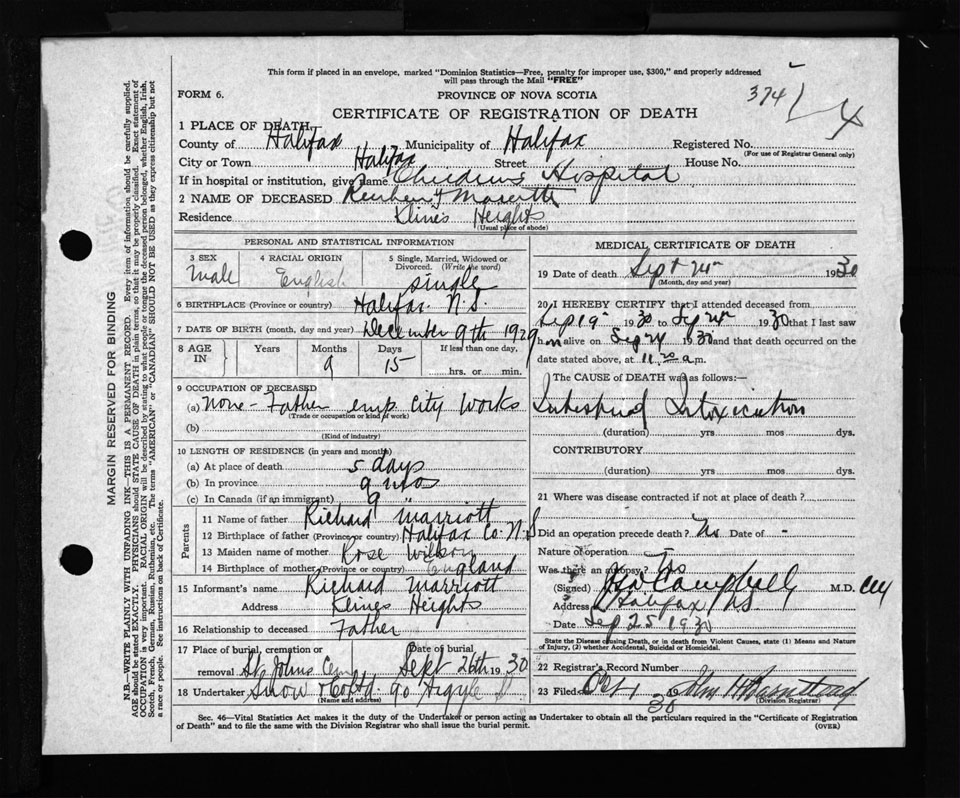 This form if placed in an envelope, marked "Dominion Statistics—Free, penalty for improper use, $300," and properly addressed
will pass through the Mail "FREE"
FORM 6.
PROVINCE OF NOVA SCOTIA
374
4
CERTIFICATE OF REGISTRATION OF DEATH
1 PLACE OF DEATH
County of Halifax Municipality of Halifax Registered No.
(For use of Registrar General only)
City or Town Halifax Street House No.
If in hospital or institution, give name Childrens Hospital
2 NAME OF DECEASED Reuben
Residence Kline's Heights
(Usual place of abode)
PERSONAL AND STATISTICAL INFORMATION
3 SEX
Male
4 RACIAL ORIGIN
English
5 Single, Married, Widowed or
Divorced. (Write the word)
single
6 BIRTHPLACE (Province or country) Halifax N.S.
7 DATE OF BIRTH (month, day and year) December 9th 1929
8 AGE IN
Years
Months
9
Days
15
If less than one day,
hrs. or min.
9 OCCUPATION OF DECEASED
(a) None - Father emp. City Works
(Trade or occupation or kind of work)
(b)
(Kind of industry)
10 LENGTH OF RESIDENCE (in years and months)
(a) At place of death 5 days
(b) In province 9 mos
(c) In Canada (if an immigrant) 9 "
Parents
11 Name of father Richard Marriott
12 Birthplace of father (Province or country) Halifax Co. N.S
13 Maiden name of mother Rose Wilson
14 Birthplace of mother (Province or country) England
15 Informant's name Richard Marriott
Address Klines Heights
16 Relationship to deceased Father
17 Place of burial, cremation or
removal St. Johns Cem
Date of burial
Sept 26th 1930
18 Undertaker Snow & Co Ltd 90 Argyle St
(Name and address)
MEDICAL CERTIFICATE OF DEATH
19 Date of death Sept 24th 1930
(Month, day and year)
20 I HEREBY CERTIFY that I attended deceased from
Sep 19th 1930 to Sep 24th 1930 that I last saw
him alive on Sep 24 1930 and that death occurred on the
date stated above, at 11.20 a.m.
The CAUSE of DEATH was as follows:—
Intestinal Intoxication
(duration) yrs mos dys.
CONTRIBUTORY
(duration) yrs mos dys.
21 Where was disease contracted if not at place of death?
Did an operation precede death? No Date of -
Nature of operation
Was there an autopsy?
(Signed) Campbell M.D.
Address Halifax NS
Date Sep 25 1930
State the Disease causing Death, or in death from Violent Causes, state (1) Means and Nature
of Injury, (2) whether Accidental, Suicidal or Homicidal.
22 Registrar's Record Number
23 Filed Oct 1 30
(Division Registrar)
Sec. 46—Vital Statistics Act makes it the duty of the Undertaker or person acting as Undertaker to obtain all the particulars required in the "Certificate of Registration
of Death" and to file the same with the Division Registrar who shall issue the burial permit.
(OVER)
MARGIN RESERVED FOR BINDING
N.B.—WRITE PLAINLY WITH UNFADING INK—THIS IS A PERMANENT RECORD. Every item of information should be carefully supplied.
AGE should be stated EXACTLY. PHYSICIANS should STATE CAUSE OF DEATH in plain terms, so that it may be properly classified. Exact statement of
OCCUPATION is very important. RACIAL ORIGIN will be described by stating to what people or tongue the deceased person belonged, whether English, Irish,
Scotch, French, German, Russian, Ruthenian, etc. The terms "AMERICAN" or "CANADIAN" SHOULD NOT BE USED as they express citizenship but not
a race or people. See instructions on back of Certificate.